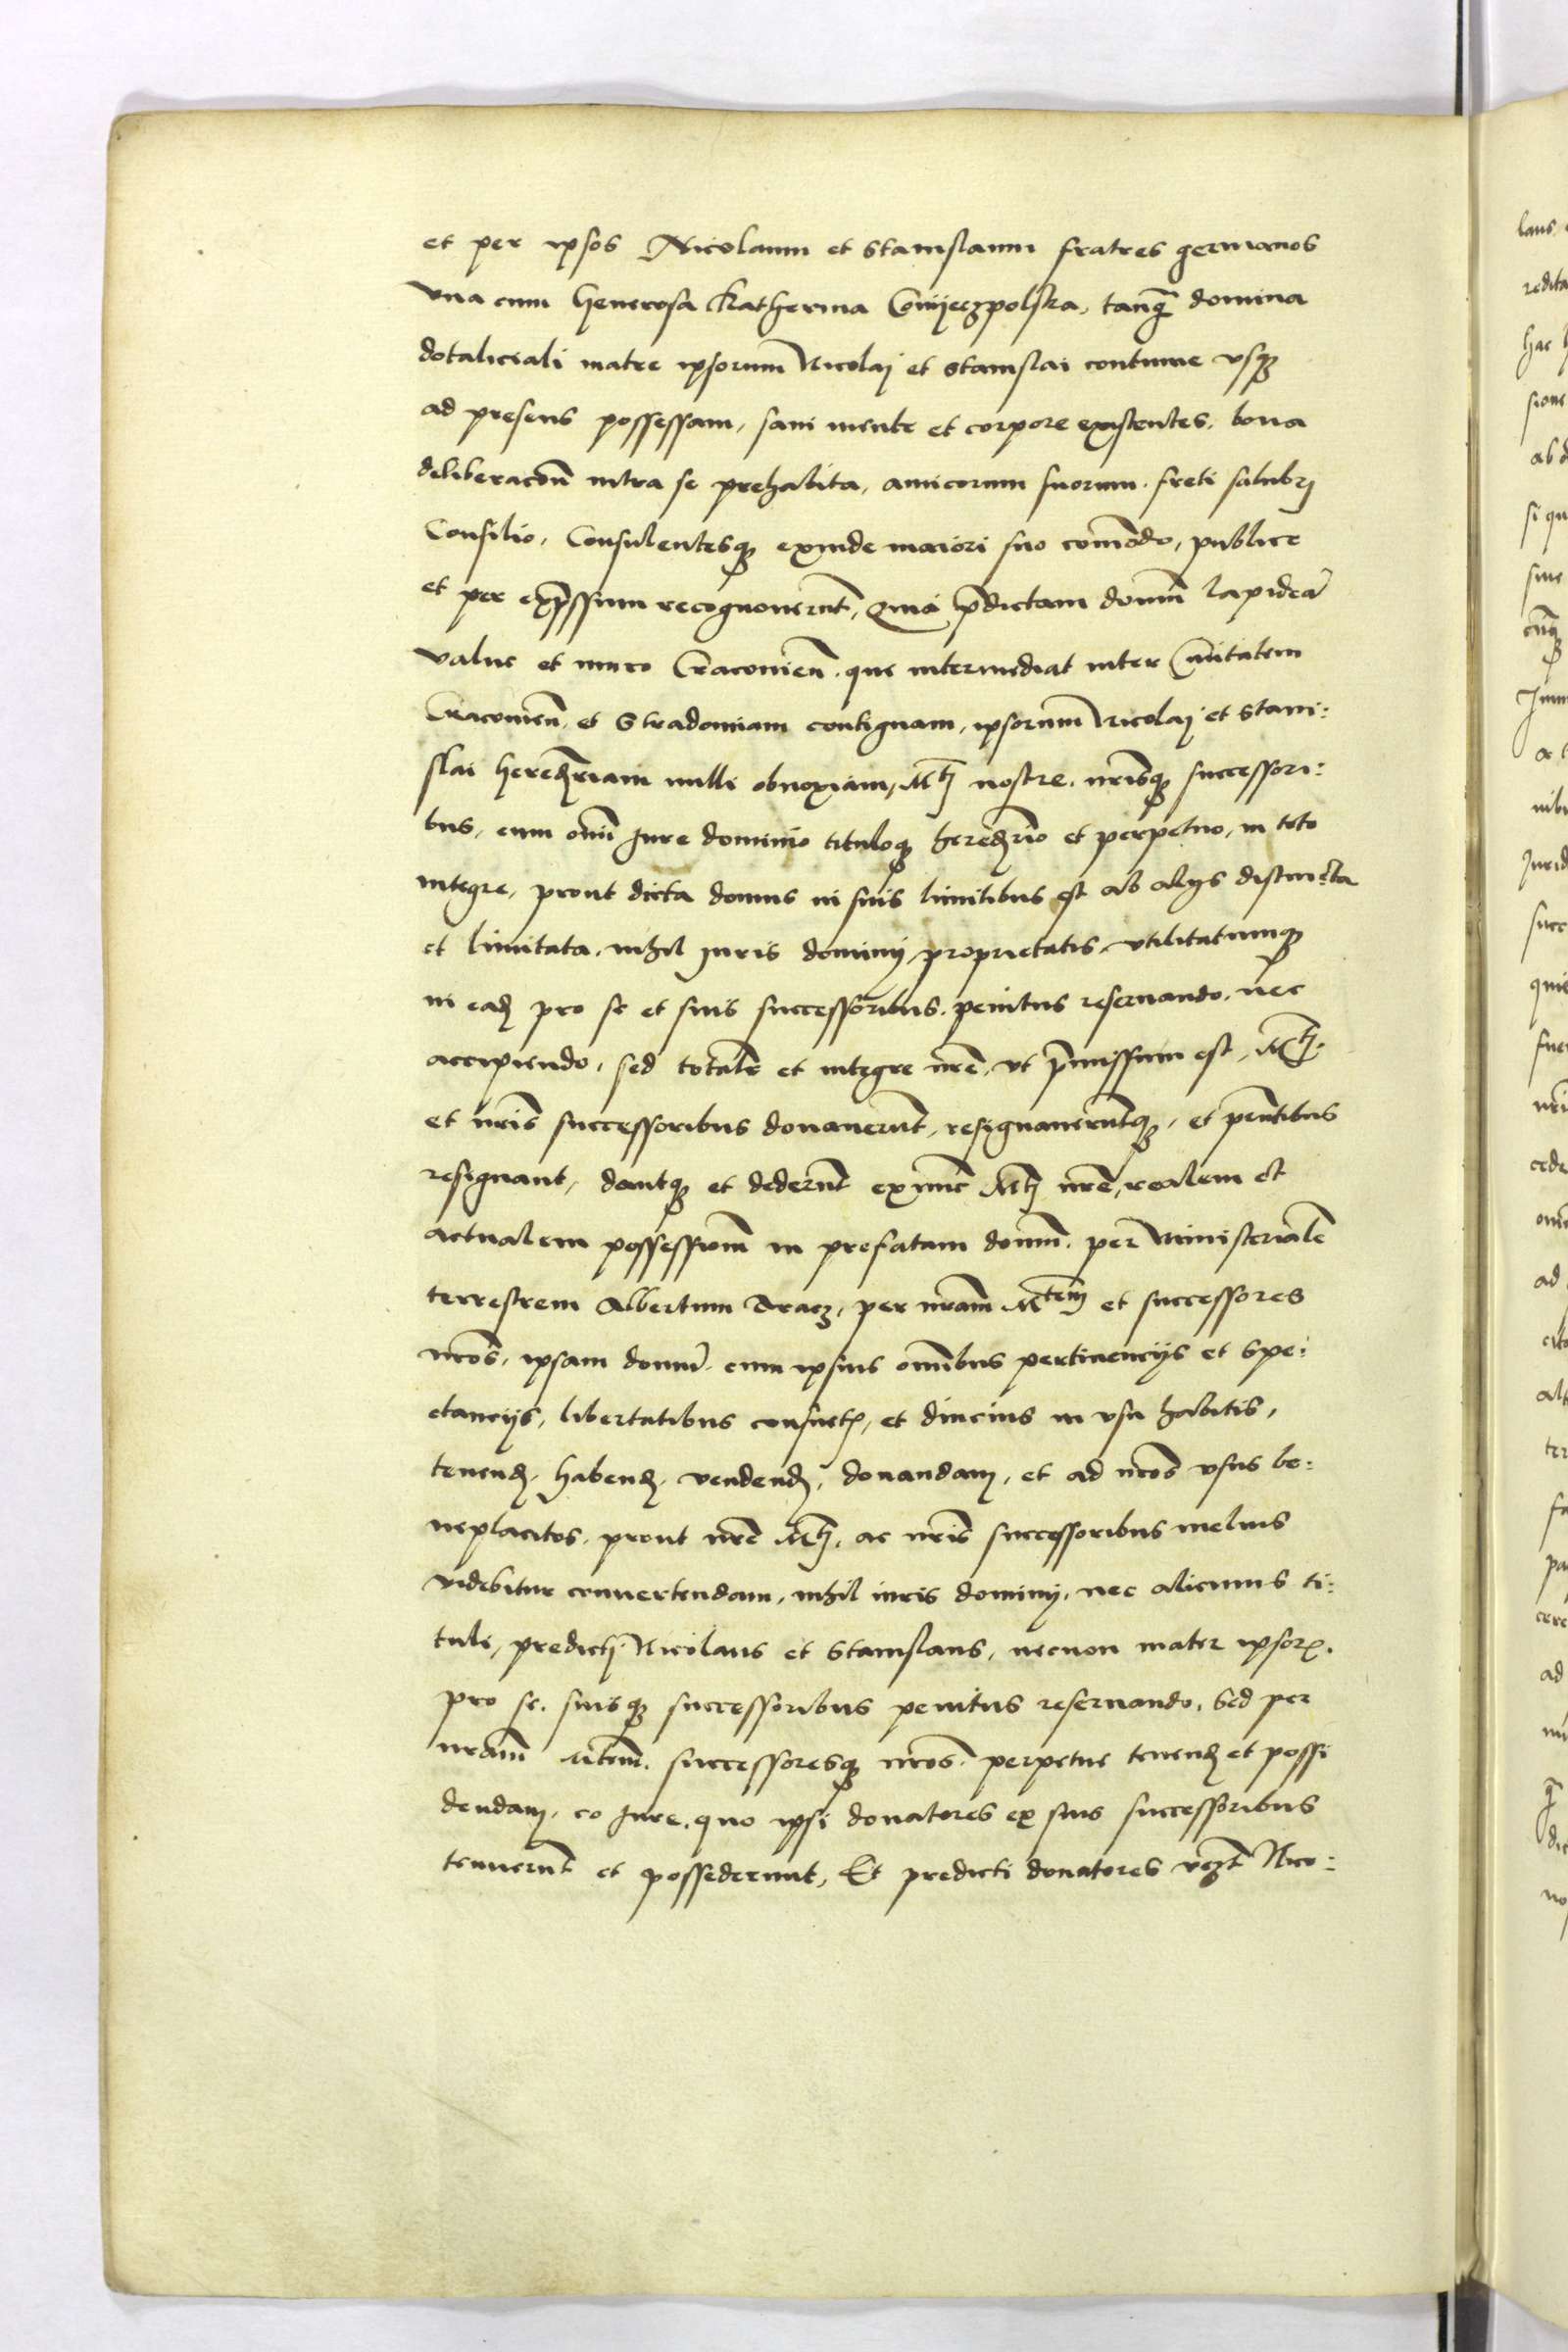 et per ipsos Nicolaum et Stanislaum fratres germanos
vna cum Generosa Katherina Conijeczpolska, tanq̃ domina
dotaliciali matre ipsorum Nicolaj et Stanislai continue vsq3
ad presens possessam, sani mente et corpore existentes, bona
deliberacõn intra se prehabita, amicorum suorum freti salubrj
Consilio, Consulentesq3 exinde maiori suo com̃odo, publice
et per exp̃ssum recognouerunt̃, Quia p̃dictam domũ lapideã
value et muro Cracouien̄. que intermediat inter Ciuitatem
Cracouien̄. et Stradomiam contiguam, ipsorum Nicolaj et Stani:
slai hered̃riam nulli obnoxiam, Mtj nostre. nr̃isq3 successori:
bus, cum om̃i Jure dominio tituloq3 hered̃rio et perpetuo, in toto
integre, prout dicta domus in suis limitibus est ab alijs distincta
et limitata, nihil Juris dominij, proprietatis, vtilitatumq3
in ead̃ pro se et suis successoribus, penitus reseruando, nec
accipiendo, sed totalẽ et integre nr̃e, vt p̃missum est, Mtj.
et nr̃is successoribus donauerunt̃, resignaueruntq3, et p̃ntibus
resignant, dantq3 et dederunt̃ ex nunc Mtj nr̃e, realem et
actualem possessionem̃ in prefatam domũ. per Ministerialẽ
terrestrem Albertum Tracz, per nr̃am Mtem̃ et successores
nr̃os, ipsam domũ. cum ipsius om̃ibus pertinencijs et spe:
ctancijs, libertatibus consuet̃, et diucius in vsu habitis,
tenend̃. habend̃. vendend̃, donandam, et ad nr̃os vsus be:
neplacitos, prout nr̃e Mtj, ac nr̃is successoribus melius
videbitur conuertendam, nihil iuris dominij, nec alicuius ti:
tuli, predicti Nicolaus et Stanislaus, necnon mater ipsor̃.
pro se, suisq3 successoribus penitus reseruando, Sed per
nr̃am Mtem̃. successoresq3 nr̃os. perpetue tenend̃ et possi
dendam, eo Jure, quo ipsi donatores ex suis successoribus
tenuerunt̃ et possederunt, Et predicti donatores vcz̃t Nico: